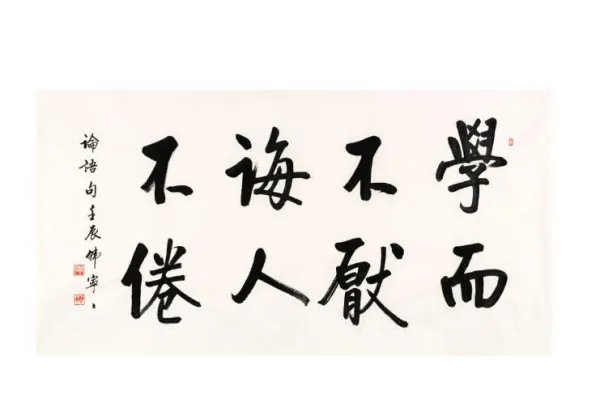 學而
不厭
誨人
不倦
論語句壬辰